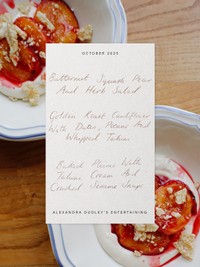 OCTOBER 2023
Butternut Squash Pear
And Herb Salad
Golden Roast Cauliflower
With Dates, Pecans And
Whipped Tahini
Baked Plums With
Tahini Cream And
Crushed Sesame Snaps
ALEXANDRA DUDLEY'S ENTERTAINING